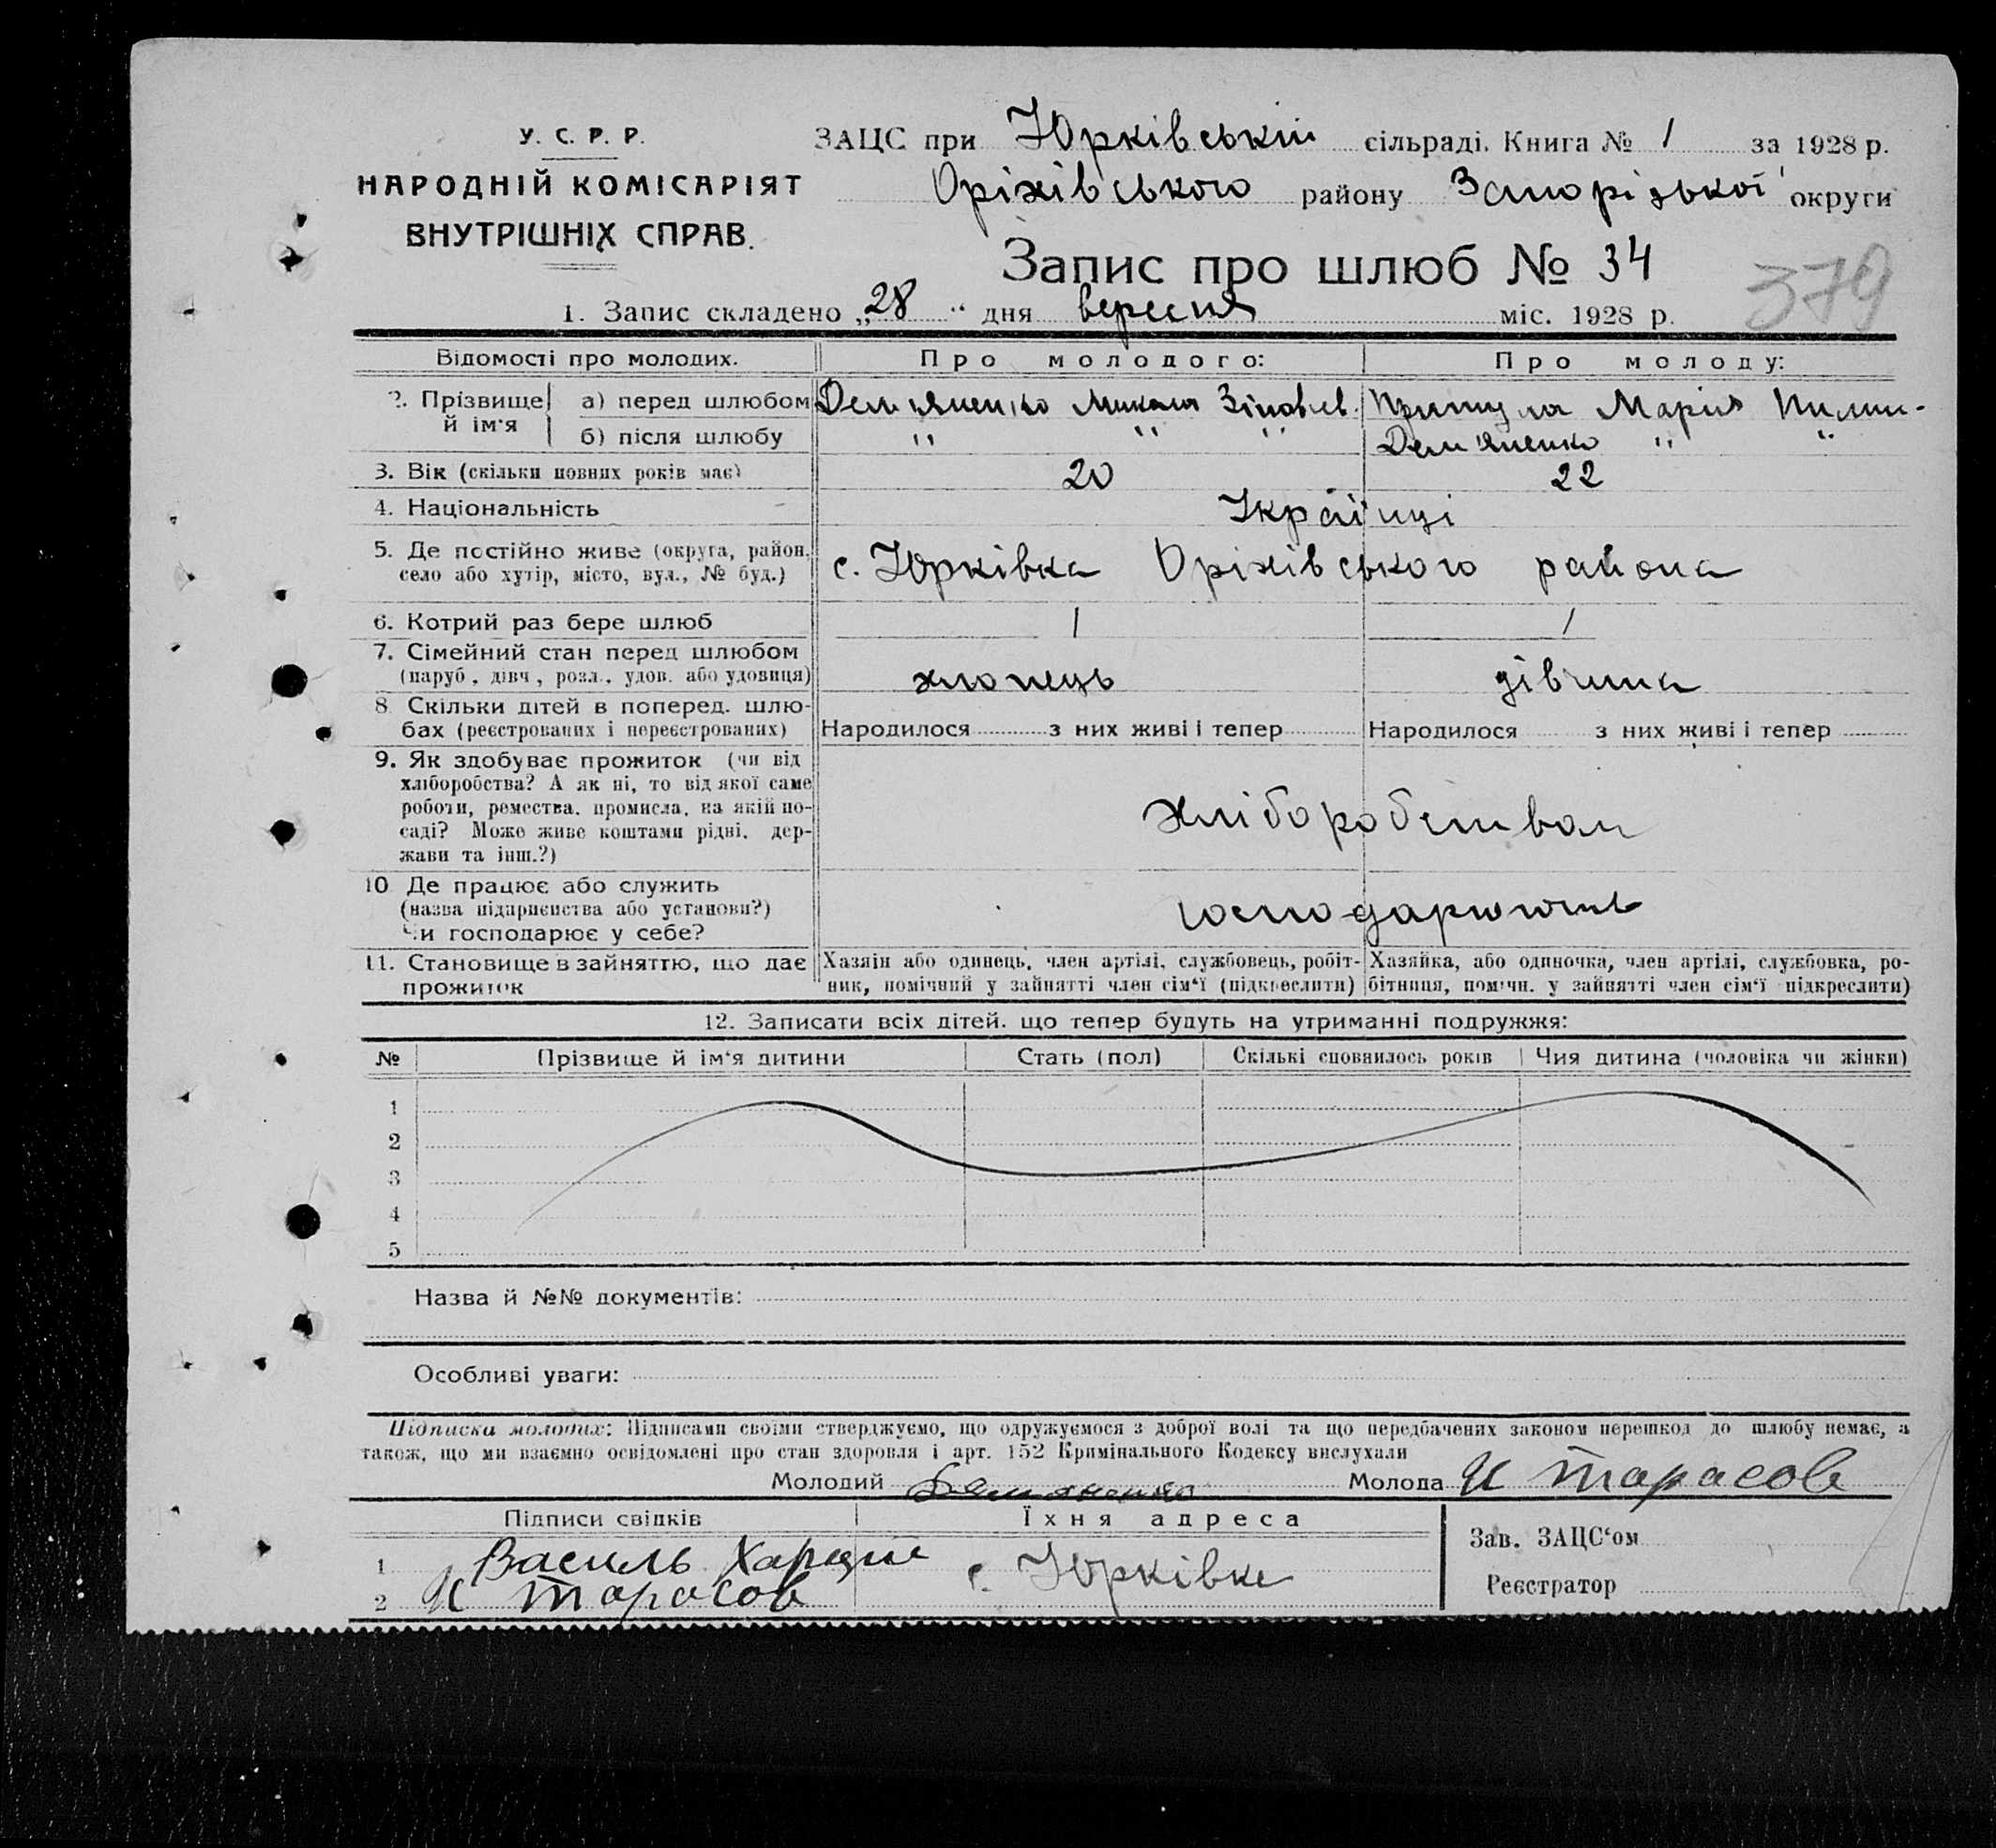 У. С. Р. Р.
НАРОДНІЙ КОМІСАРІЯТ
ВНУТРІШНІХ СПРАВ.
ЗАЦС при Юрківській сільраді. Книга № 1 за 1928 р.
Оріхівського району Запорізької округи
Запис про шлюб № 34
379
1. Запис складено „28“ дня вересня міс. 1928 р.
Відомості про молодих. Про молодого: Про молоду:
2. Прізвище й ім'я а) перед шлюбом Дем'яненко Микола Зіновіев. Притула Марія
б) після шлюбу " " " Дем'яненко " "
3. Вік (скільки повних років має) 20 22
4. Національність Українці
5. Де постійно живе (округа, район, село або хутір, місто, вул., № буд.) с. Юрківка Оріхівського района
6. Котрий раз бере шлюб 1 1
7. Сімейний стан перед шлюбом
(паруб, дівч, розл., удов. або удовиця) хлопець дівчина
8 Скільки дітей в поперед. шлю-
бах (реєстрованих і нереєстрованих) Народилося з них живі і тепер Народилося з них живі і тепер
9. Як здобуває прожиток (чи від
хліборобства? А як ні, то від якої саме
роботи, ремества, промисла, на якій по-
саді? Може живе коштами рідні, дер-
жави та інш.?) Хліборобством
10 Де працює або служить
(назва підприємства або установи?)
Чи господарює у себе? господарюють
11. Становище в зайняттю, що дає прожиток
Хазяін або одинець, член артілі, службовець, робіт-
ник, помічний у зайнятті член сім'ї (підкреслити)
Хазяйка, або одиночка, член артілі, службовка, ро-
бітниця, помічн. у зайнятті член сім'ї підкреслити)
12. Записати всіх дітей. що тепер будуть на утриманні подружжя:
№ Прізвище й ім'я дитини Стать (пол) Скількі сповнилось років Чия дитина (чоловіка чи жінки)
1
2
3
4
5
Назва й №№ документів:
Особливі уваги:
Підписка молодих: Підписами своїми стверджуємо, що одружуємося з доброї волі та що передбачених законом перешкод до шлюбу немає, а
також, що ми взаємно освідомлені про стан здоровля і арт. 152 Кримінального Кодексу вислухали
Молодий Демяненко Молода И Тарасов
Підписи свідків Їхня адреса
1 Василь
2 И Тарасов
с. Юрківка
Зав. ЗАЦС'ом
Реєстратор